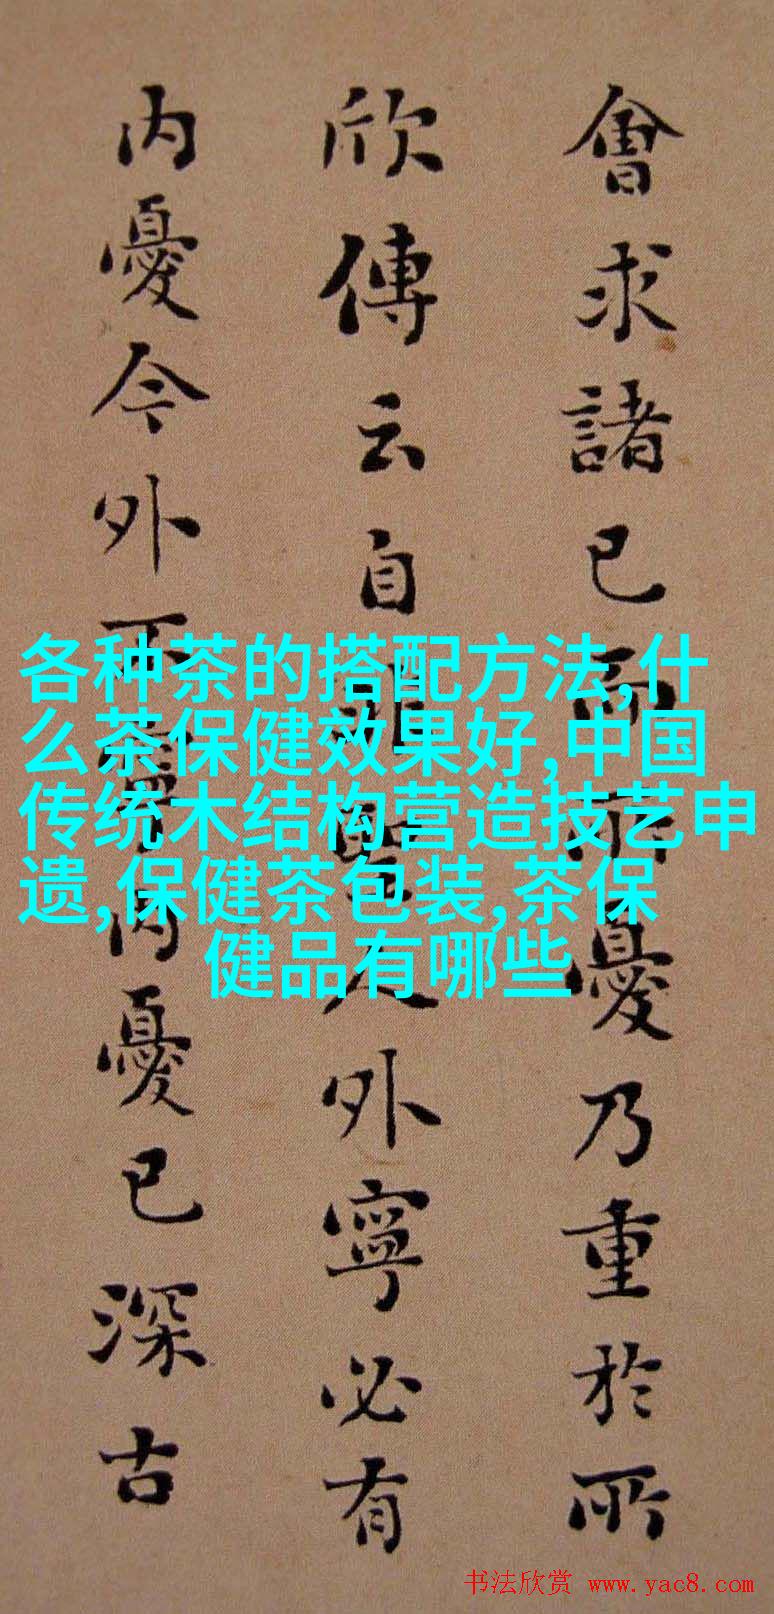 會求諸已而所憂乃重於所
欣傳云自非聖人外寧必有
内憂今外不寧内憂已深古
各种茶的搭配方法,什
么茶保健效果好,中国
传统木结构营造技艺申
遗,保健茶包装,茶保
健品有哪些
书法欣赏 www.yac8.com